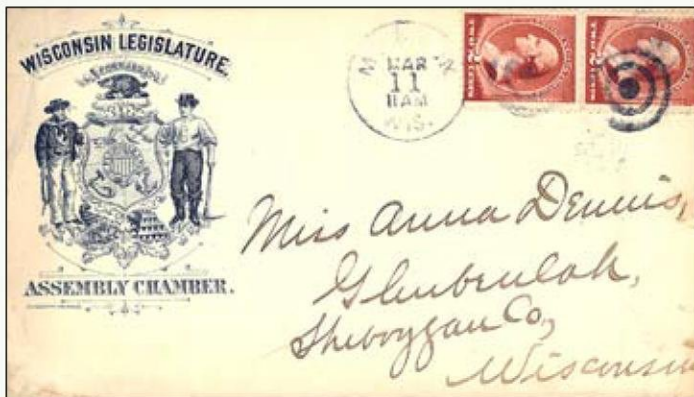 WISCONSIN LEGISLATURE.
ASSEMBLY CHAMBER.
MAR
11
8AM
WIS.
Miss Anna Dennis,
Glenbeulah,
Sheboygan Co,
Wisconsin